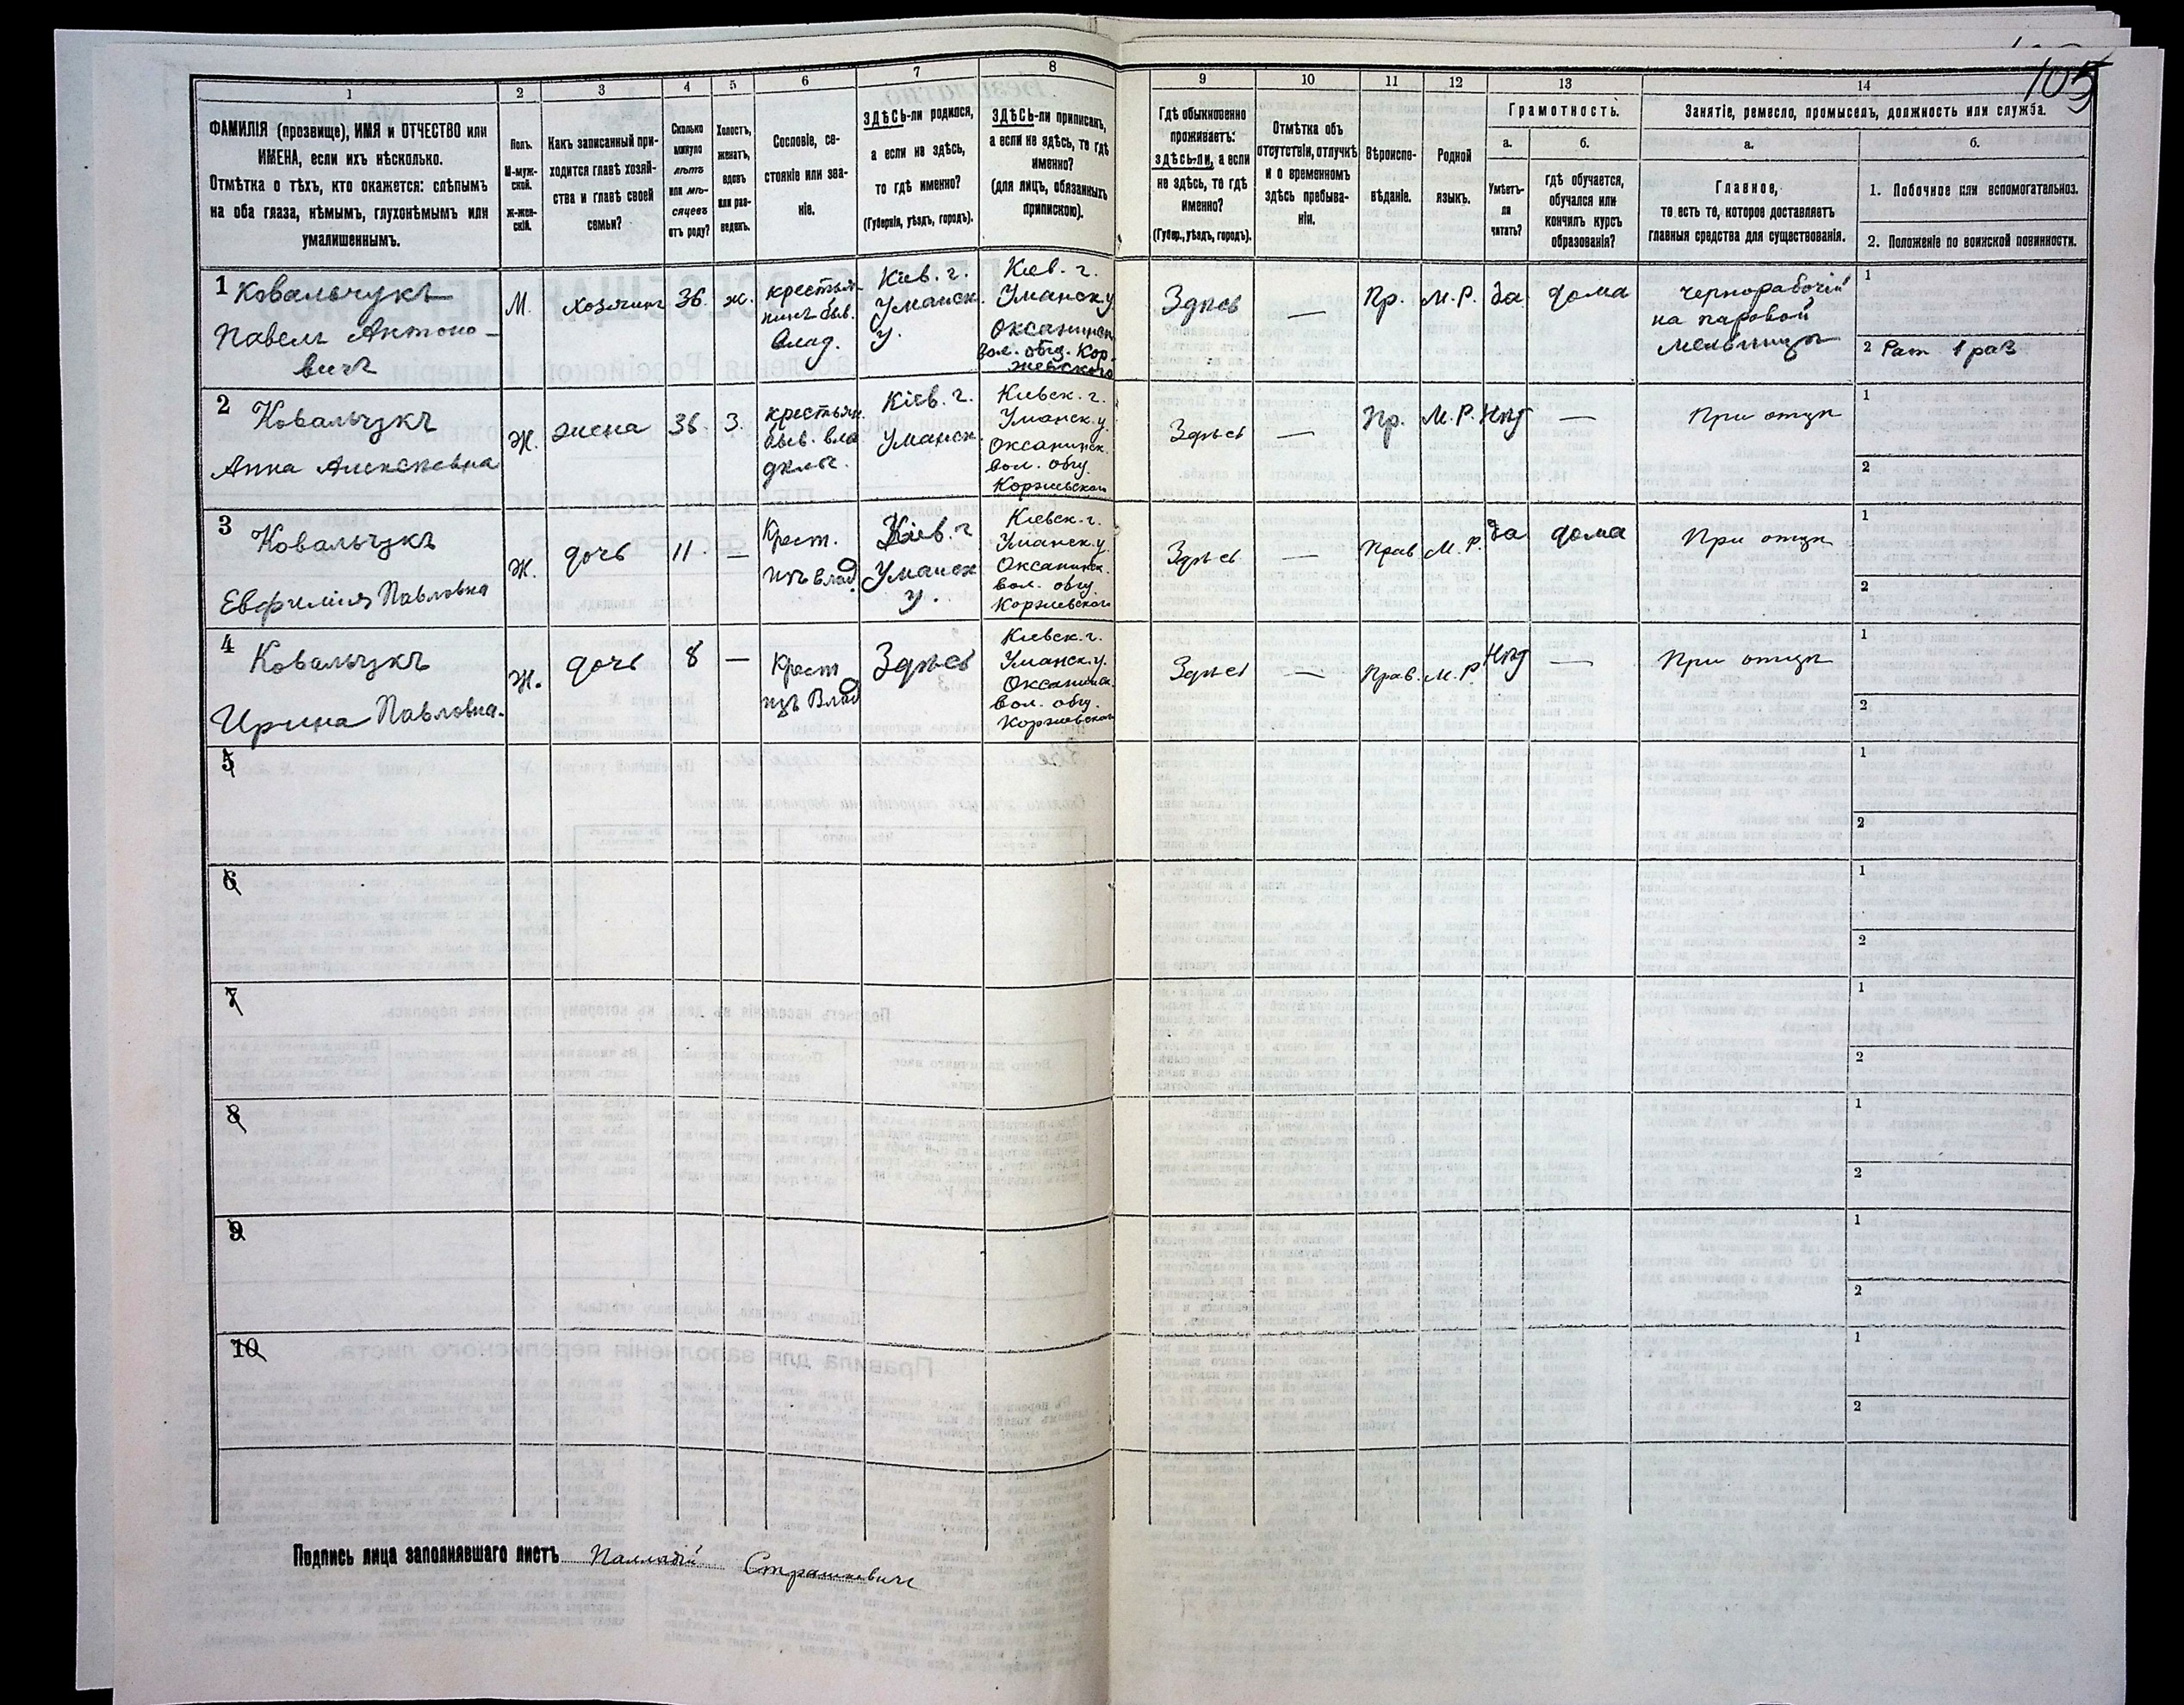 105
1
2
3
4
5
6
7
8
9
10
11
12
13
14
ФАМИЛІЯ (прозвище), ИМЯ и ОТЧЕСТВО или
ИМЕНА, если ихъ нѣсколько.
Отмѣтка о тѣхъ, кто окажется: слѣпымъ
на оба глаза, нѣмымъ, глухонѣмымъ или
умалишеннымъ.
Полъ.
М-муж-
ской.
ж-жен-
скій.
Какъ записанный при-
ходится главѣ хозяй-
ства и главѣ своей
семьи?
Сколько
минуло
лѣтъ
или мѣ-
сяцевъ
отъ роду?
Холостъ,
женатъ,
вдовъ
или раз-
веденъ.
Сословіе, со-
стояніе или зва-
ніе.
ЗДѢСЬ-ли родился,
а если не здѣсь,
то гдѣ именно?
(Губернія, уѣздъ, городъ).
ЗДѢСЬ-ли приписанъ,
а если не здѣсь, то гдѣ
именно?
(для лицъ, обязанныхъ
припискою).
Гдѣ обыкновенно
проживаетъ:
здѣсь-ли, а если
не здѣсь, то гдѣ
именно?
(Губер., уѣздъ, городъ).
Отмѣтка объ
отсутствіи, отлучкѣ
и о временномъ
здѣсь пребыва-
ніи.
Вѣроиспо-
вѣданіе.
Родной
языкъ.
Грамотность.
а.
Умѣетъ-
ли
читать?
б.
гдѣ обучается,
обучался или
кончилъ курсъ
образованія?
Занятіе, ремесло, промыселъ, должность или служба.
а.
Главное,
то есть то, которое доставляетъ
главныя средства для существованія.
б.
1. Побочное или вспомогательное.
2. Положеніе по воинской повинности.
1 Ковальчукъ
Павелъ Антоно-
вичъ
М.
хозяинъ
36.
ж.
крестья-
нинъ быв.
влад.
Кіев. г.
Уманск.
у.
Кіев. г.
Уманск. у.
Оксанинск.
вол. общ. Кор-
жевского
Здѣсь
—
Пр.
М.Р.
да
дома
чернорабочій
на паровой
мельницѣ
1
2 Рат. 1 раз
2 Ковальчукъ
Анна Алексѣевна
Ж.
жена
36.
З.
крестьян.
быв. вла
дѣльч.
Кіев. г.
Уманск.
Кіевск. г.
Уманск. у.
Оксанинск.
вол. общ.
Коржевского
Здѣсь
—
Пр.
М.Р.
Нѣт
—
При отцѣ
1
2
3 Ковальчукъ
Евфимія Павловна
Ж.
дочь
11.
—
Крест.
изъ влад.
Кіев. г
Уманск
у.
Кіевск. г.
Уманск. у.
Оксанинск.
вол. общ.
Коржевского
Здѣсь
—
Прав
М.Р.
да
дома
При отцѣ
1
2
4 Ковальчукъ
Ирина Павловна.
Ж.
дочь
8
—
Крест
изъ Влад
Здѣсь
Кіевск. г.
Уманск. у.
Оксанинск.
вол. общ.
Коржевского
Здѣсь
—
Прав.
М.Р.
Нѣт
—
При отцѣ
1
2
5
1
2
6
1
2
7
1
2
8
1
2
9
1
2
10
1
2
Подпись лица заполнявшаго листъ Палладій Страшкевичъ